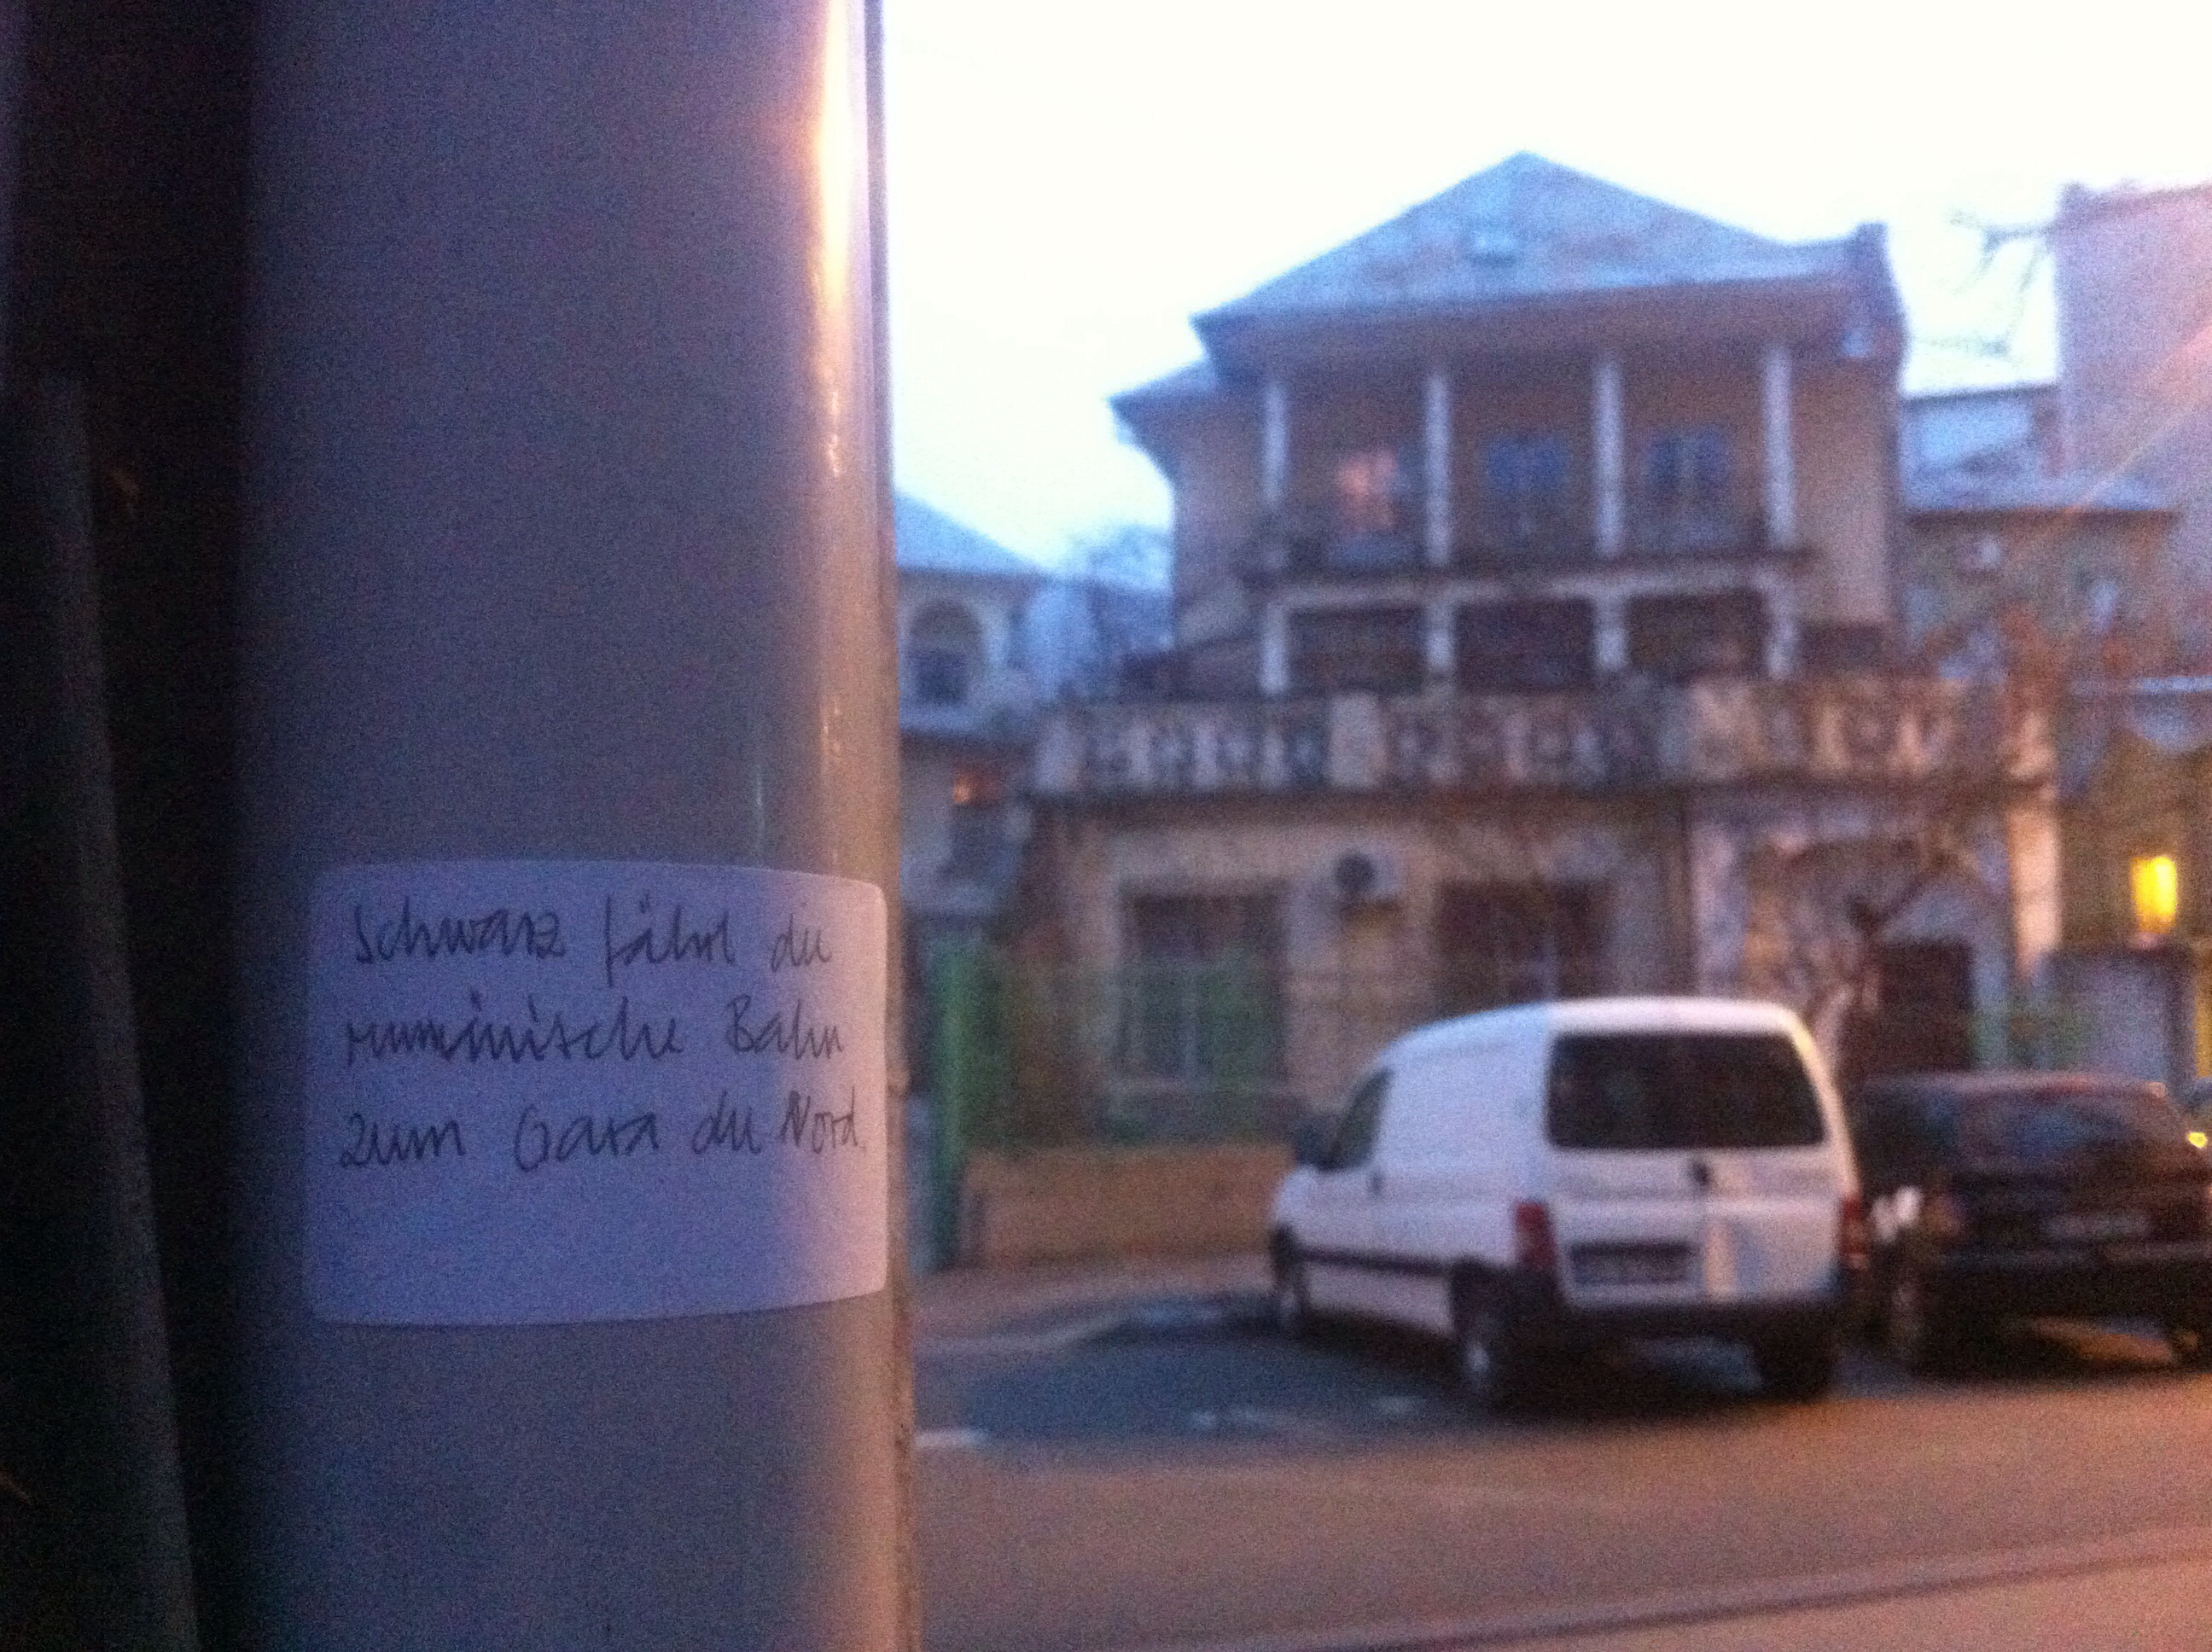 Schwarz fährt die
rumänische Bahn
zum Gara du Nord.